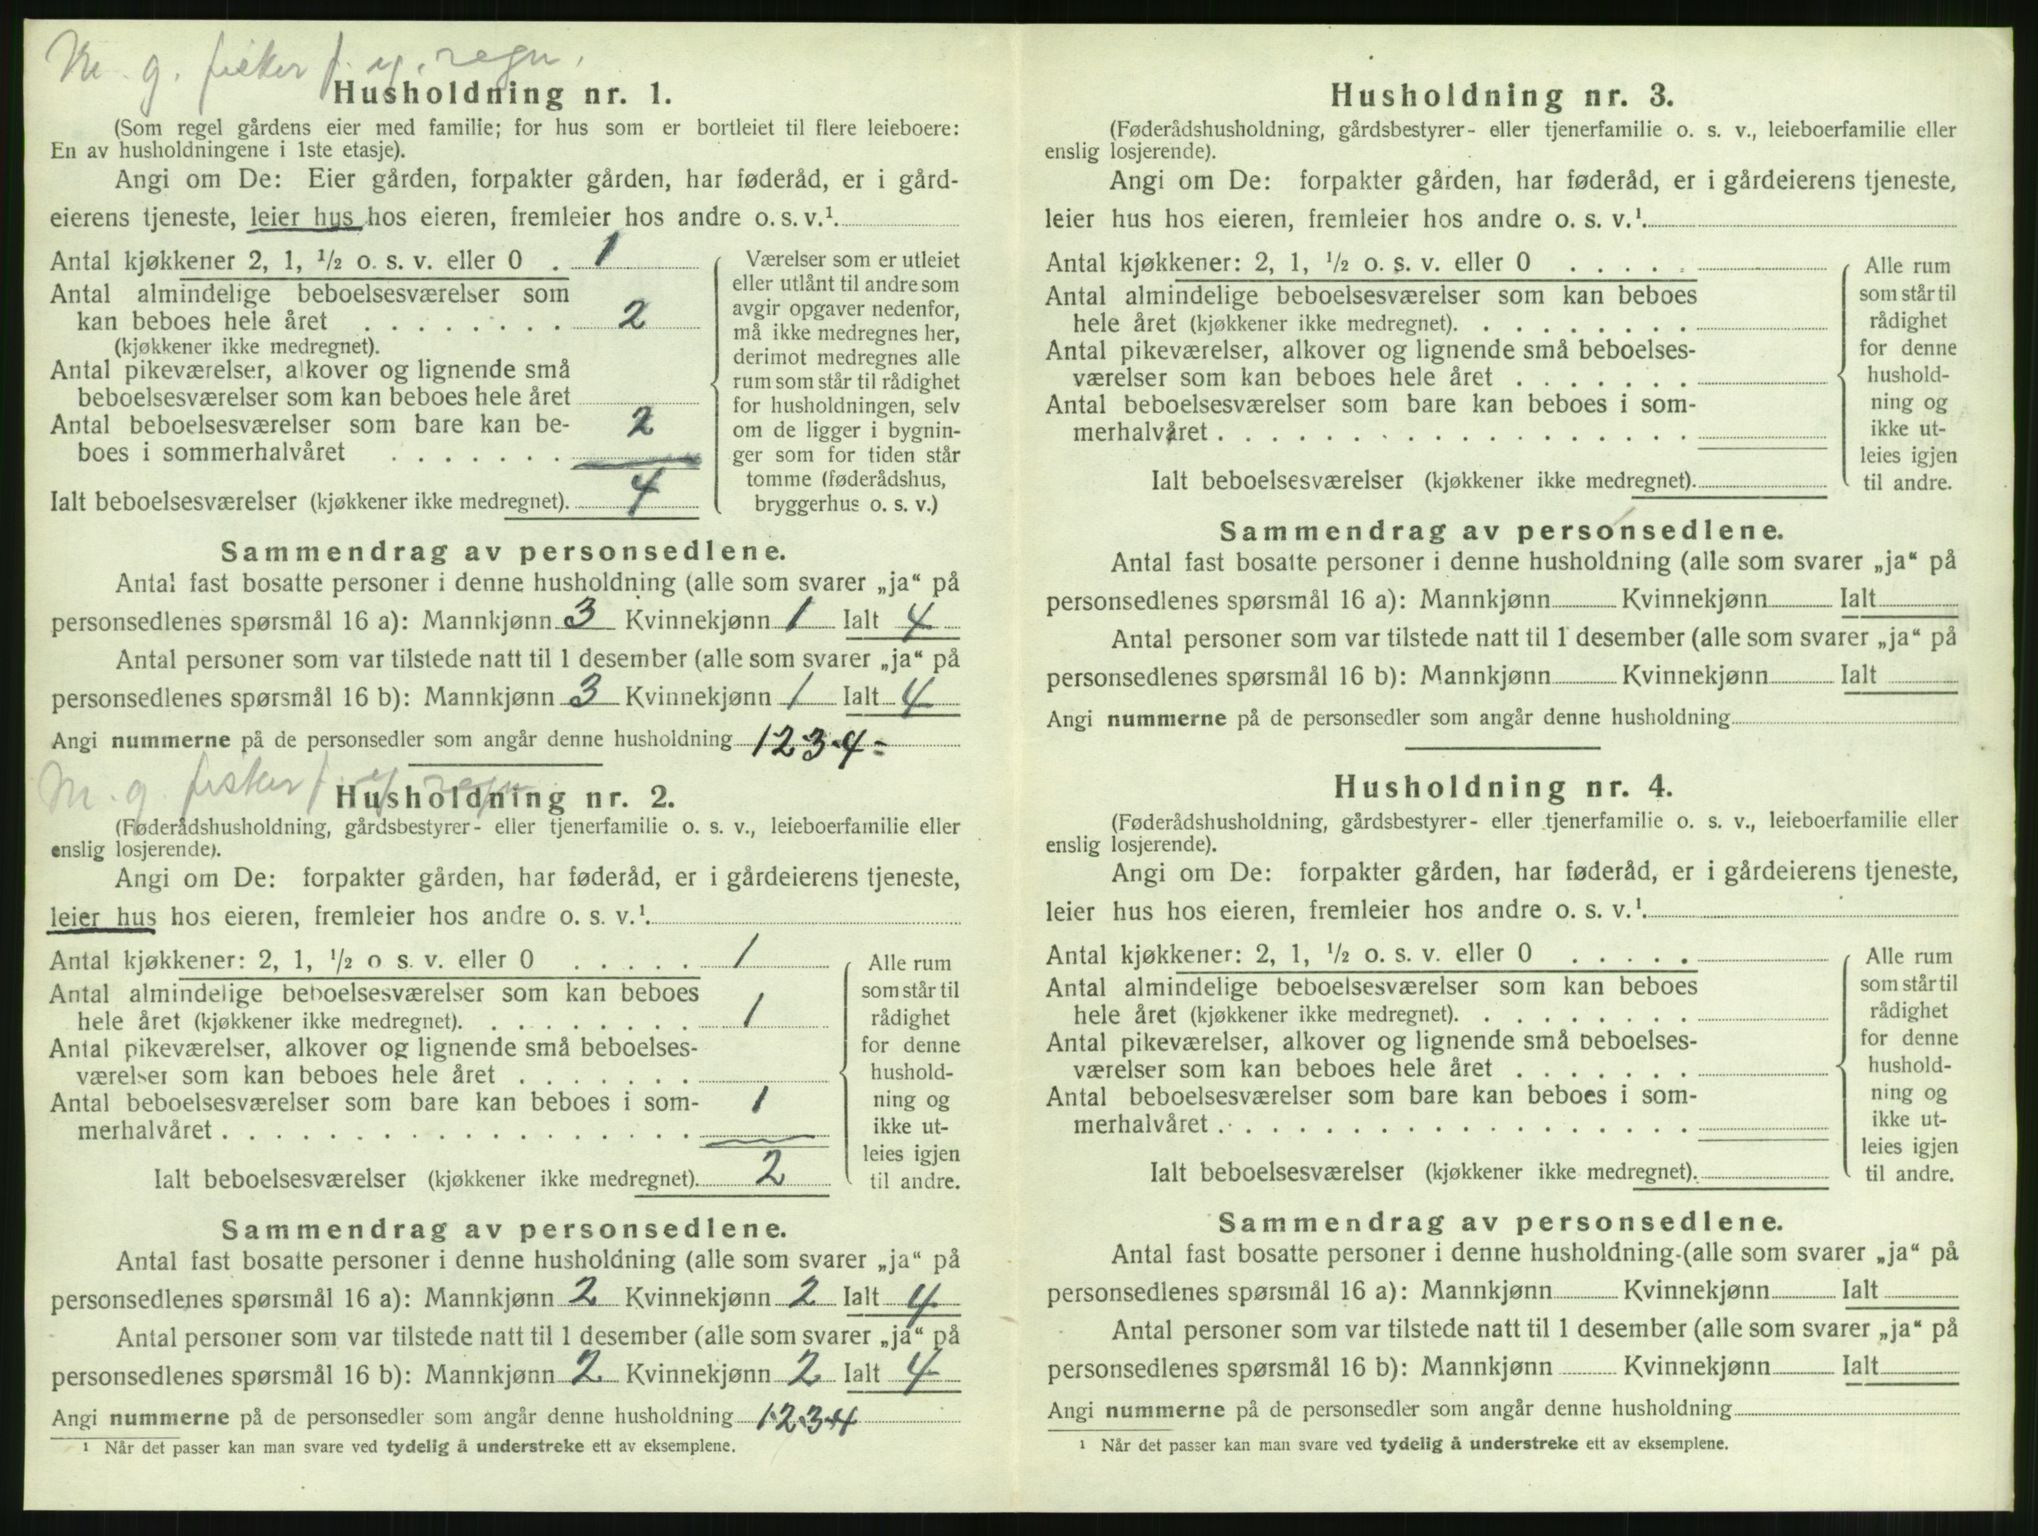 M. g. fisker f. y. regn.
Husholdning nr. 1.
(Som regel gårdens eier med familie; for hus som er bortleiet til flere leieboere:
En av husholdningene i 1ste etasje).
Angi om De: Eier gården, forpakter gården, har føderåd, er i gård-
eierens tjeneste, leier hus hos eieren, fremleier hos andre o. s. v.¹
Antal kjøkkener 2, 1, ½ o. s. v. eller 0 . 1
Antal almindelige beboelsesværelser som
kan beboes hele året . . . . . . . . 2
(kjøkkener ikke medregnet).
Antal pikeværelser, alkover og lignende små
beboelsesværelser som kan beboes hele året
Antal beboelsesværelser som bare kan be-
boes i sommerhalvåret . . . . . . . 2
Ialt beboelsesværelser (kjøkkener ikke medregnet). 4
Værelser som er utleiet
eller utlånt til andre som
avgir opgaver nedenfor,
må ikke medregnes her,
derimot medregnes alle
rum som står til rådighet
for husholdningen, selv
om de ligger i bygnin-
ger som for tiden står
tomme (føderådshus,
bryggerhus o. s. v.)
Sammendrag av personsedlene.
Antal fast bosatte personer i denne husholdning (alle som svarer „ja“ på
personsedlenes spørsmål 16 a): Mannkjønn 3 Kvinnekjønn 1 Ialt 4
Antal personer som var tilstede natt til 1 desember (alle som svarer „ja“ på
personsedlenes spørsmål 16 b): Mannkjønn 3 Kvinnekjønn 1 Ialt 4
Angi nummerne på de personsedler som angår denne husholdning 1 2 3 4 =
M. g. fisker f. y. regn
Husholdning nr. 2.
(Føderådshusholdning, gårdsbestyrer- eller tjenerfamilie o. s. v., leieboerfamilie eller
enslig losjerende).
Angi om De: forpakter gården, har føderåd, er i gårdeierens tjeneste,
leier hus hos eieren, fremleier hos andre o. s. v.¹
Antal kjøkkener: 2, 1, ½ o s. v. eller 0 . . . . . 1
Antal almindelige beboelsesværelser som kan beboes
hele året (kjøkkener ikke medregnet). . . . . . . . . 1
Antal pikeværelser, alkover og lignende små beboelses-
værelser som kan beboes hele året . . . . . . .
Antal beboelsesværelser som bare kan beboes i som-
merhalvåret . . . . . . . . . . . . . . . . . . 1
Ialt beboelsesværelser (kjøkkener ikke medregnet). 2
Alle rum
som står til
rådighet
for denne
hushold-
ning og
ikke ut-
leies igjen
til andre.
Sammendrag av personsedlene.
Antal fast bosatte personer i denne husholdning (alle som svarer „ja“ på
personsedlenes spørsmål 16 a): Mannkjønn 2 Kvinnekjønn 2 Ialt 4
Antal personer som var tilstede natt til 1 desember (alle som svarer „ja“ på
personsedlenes spørsmål 16 b): Mannkjønn 2 Kvinnekjønn 2 Ialt 4
Angi nummerne på de personsedler som angår denne husholdning 1.2.3.4
¹ Når det passer kan man svare ved tydelig å understreke ett av eksemplene.
Husholdning nr. 3.
(Føderådshusholdning, gårdsbestyrer- eller tjenerfamilie o. s. v., leieboerfamilie eller
enslig losjerende).
Angi om De: forpakter gården, har føderåd, er i gårdeierens tjeneste,
leier hus hos eieren, fremleier hos andre o. s. v.¹
Antal kjøkkener: 2, 1, ½ o. s. v. eller 0 . . . . .
Antal almindelige beboelsesværelser som kan beboes
hele året (kjøkkener ikke medregnet). . . . . . . . .
Antal pikeværelser, alkover og lignende små beboelses-
værelser som kan beboes hele året . . . . . . .
Antal beboelsesværelser som bare kan beboes i som-
merhalvåret . . . . . . . . . . . . . . . . . .
Ialt beboelsesværelser (kjøkkener ikke medregnet).
Alle rum
som står til
rådighet
for denne
hushold-
ning og
ikke ut-
leies igjen
til andre.
Sammendrag av personsedlene.
Antal fast bosatte personer i denne husholdning (alle som svarer „ja“ på
personsedlenes spørsmål 16 a): Mannkjønn Kvinnekjønn Ialt
Antal personer som var tilstede natt til 1 desember (alle som svarer „ja“ på
personsedlenes spørsmål 16 b): Mannkjønn Kvinnekjønn Ialt
Angi nummerne på de personsedler som angår denne husholdning
Husholdning nr. 4.
(Føderådshusholdning, gårdsbestyrer- eller tjenerfamilie o. s. v., leieboerfamilie eller
enslig losjerende).
Angi om De: forpakter gården, har føderåd, er i gårdeierens tjeneste,
leier hus hos eieren, fremleier hos andre o. s. v.¹
Antal kjøkkener: 2, 1, ½ o. s. v. eller 0 . . . . .
Antal almindelige beboelsesværelser som kan beboes
hele året (kjøkkener ikke medregnet). . . . . . . . .
Antal pikeværelser, alkover og lignende små beboelses-
værelser som kan beboes hele året . . . . . . .
Antal beboelsesværelser som bare kan beboes i som-
merhalvåret . . . . . . . . . . . . . . . . . .
Ialt beboelsesværelser (kjøkkener ikke medregnet).
Alle rum
som står til
rådighet
for denne
hushold-
ning og
ikke ut-
leies igjen
til andre.
Sammendrag av personsedlene.
Antal fast bosatte personer i denne husholdning (alle som svarer „ja“ på
personsedlenes spørsmål 16 a): Mannkjønn Kvinnekjønn Ialt
Antal personer som var tilstede natt til 1 desember (alle som svarer „ja“ på
personsedlenes spørsmål 16 b): Mannkjønn Kvinnekjønn Ialt
Angi nummerne på de personsedler som angår denne husholdning
¹ Når det passer kan man svare ved tydelig å understreke ett av eksemplene.